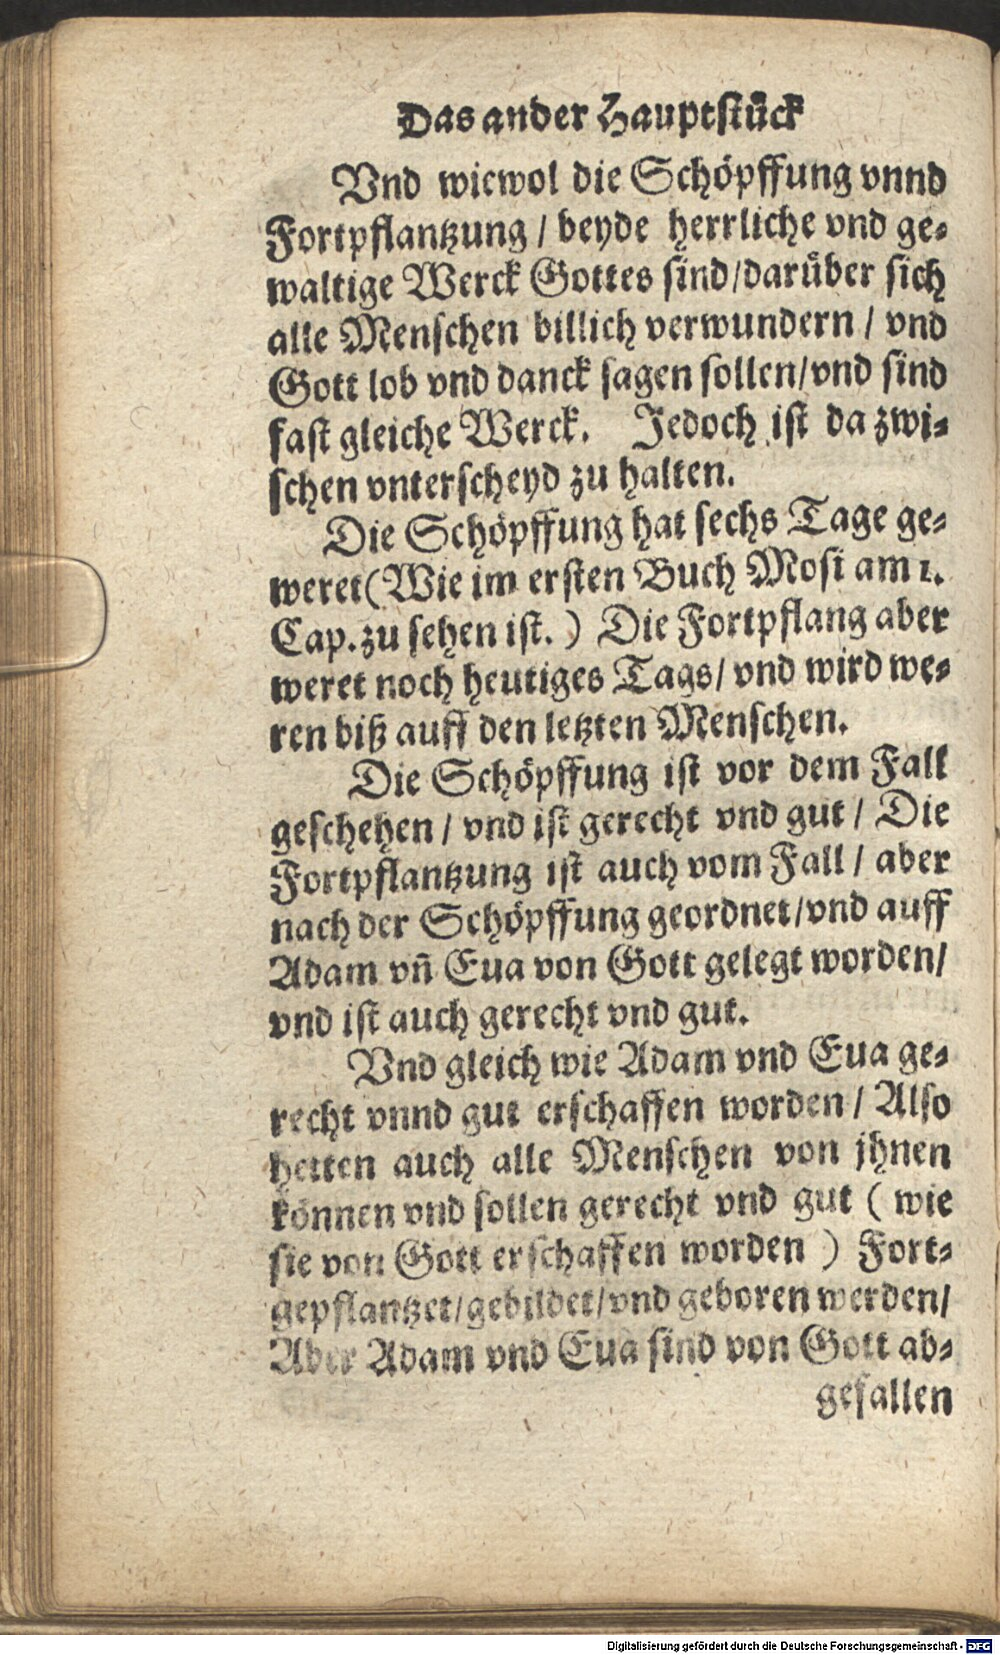 Das ander Hauptstück
Vnd wiewol die Schöpffung vnnd
Fortpflantzung / beyde herrliche vnd ge-
waltige Werck Gottes sind/darüber sich
alle Menschen billich verwundern / vnd
Gott lob vnd danck sagen sollen/vnd sind
fast gleiche Werck. Jedoch ist da zwi-
schen vnterscheyd zu halten.
Die Schöpffung hat sechs Tage ge-
weret(Wie im ersten Buch Mosi am 1.
Cap.zu sehen ist.) Die Fortpflang aber
weret noch heutiges Tags/ vnd wird we-
ren biß auff den letzten Menschen.
Die Schöpffung ist vor dem Fall
geschehen / vnd ist gerecht vnd gut / Die
Fortpflantzung ist auch vom Fall / aber
nach der Schöpffung geordnet/vnd auff
Adam vñ Eua von Gott gelegt worden/
vnd ist auch gerecht vnd gut.
Vnd gleich wie Adam vnd Eua ge-
recht vnnd gut erschaffen worden / Also
hetten auch alle Menschen von jhnen
können vnd sollen gerecht vnd gut ( wie
sie von Gott erschaffen worden ) Fort-
gepflantzet/gebildet/vnd geboren werden/
Aber Adam vnd Eua sind von Gott ab-
gefallen
Digitalisierung gefördert durch die Deutsche Forschungsgemeinschaft - DFG